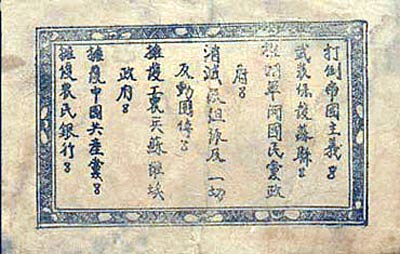 打倒帝國主義!
武裝保護蘇聯!
推翻軍閥國民黨政
府!
消滅改組派及一切
反動團体!
擁護工農兵蘇維埃
政府!
擁護中國共產黨!
擁護農民銀行!